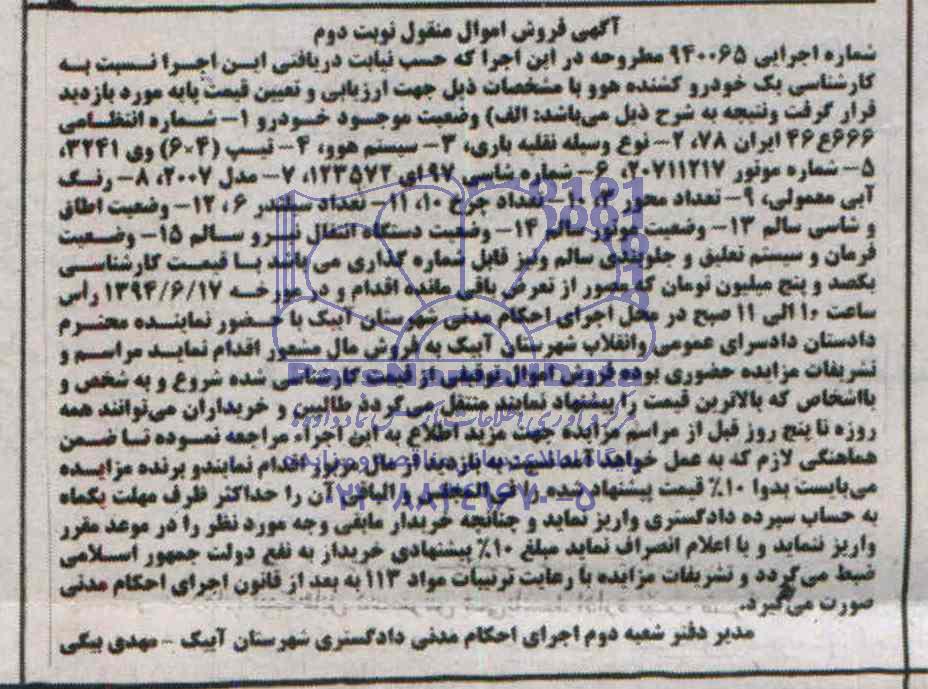 آگهی فروش اموال منقول نوبت دوم
شماره اجرایی ۹۴۰۰۶۵ مطروحه در این اجرا که حسب نیابت دریافتی این اجرا نسبت به
کارشناسی یک خودرو کشنده هوو با مشخصات ذیل جهت ارزیابی و تعیین قیمت پایه مورد بازدید
قرار گرفت ونتیجه به شرح ذیل می‌باشد: الف) وضعیت موجود خودرو ۱- شماره انتظامی
۶۶۶ع۴۶ ایران ۷۸، ۲- نوع وسیله نقلیه باری، ۳- سیستم هوو، ۴- تیپ (۴×۶) وی ۳۲۴۱،
۵- شماره موتور ۲۰۷۱۱۲۱۷، ۶- شماره شاسی ۹۷ای ۱۲۳۵۷۲، ۷- مدل ۲۰۰۷، ۸- رنگ
آبی معمولی، ۹- تعداد محور ۳، ۱۰- تعداد چرخ ۱۰، ۱۱- تعداد سیلندر ۶، ۱۲- وضعیت اطاق
و شاسی سالم ۱۳- وضعیت موتور سالم ۱۴- وضعیت دستگاه انتقال نیرو سالم ۱۵- وضعیت
فرمان و سیستم تعلیق و جلوبندی سالم ونیز قابل شماره گذاری می باشد با قیمت کارشناسی
یکصد و پنج میلیون تومان که مصور از تعرض باقی مانده اقدام و در مورخه ۱۳۹۴/۶/۱۷ رأس
ساعت ۱۰ الی ۱۱ صبح در محل اجرای احکام مدنی شهرستان آبیک با حضور نماینده محترم
دادستان دادسرای عمومی وانقلاب شهرستان آبیک به فروش مال مشعور اقدام نماید مراسم و
تشریفات مزایده حضوری بوده فروش اموال توقیفی از قیمت کارشناسی شده شروع و به شخص و
یااشخاص که بالاترین قیمت را پیشنهاد نمایند منتقل می‌گردد طالبین و خریداران می‌توانند همه
روزه تا پنج روز قبل از مراسم مزایده جهت مزید اطلاع به این اجراء مراجعه نموده تا ضمن
هماهنگی لازم که به عمل خواهد آمد نسبت به بازدید از مال مزبور اقدام نمایندو برنده مزایده
می‌بایست بدوا ۱۰٪ قیمت پیشنهاد شده را فی‌المجلس و الباقی آن را حداکثر ظرف مهلت یکماه
به حساب سپرده دادگستری واریز نماید و چنانچه خریدار مابقی وجه مورد نظر را در موعد مقرر
واریز ننماید و یا اعلام انصراف نماید مبلغ ۱۰٪ پیشنهادی خریدار به نفع دولت جمهور اسلامی
ضبط می‌گردد و تشریفات مزایده با رعایت ترتیبات مواد ۱۱۳ به بعد از قانون اجرای احکام مدنی
صورت می‌گیرد.
مدیر دفتر شعبه دوم اجرای احکام مدنی دادگستری شهرستان آبیک - مهدی بیگی